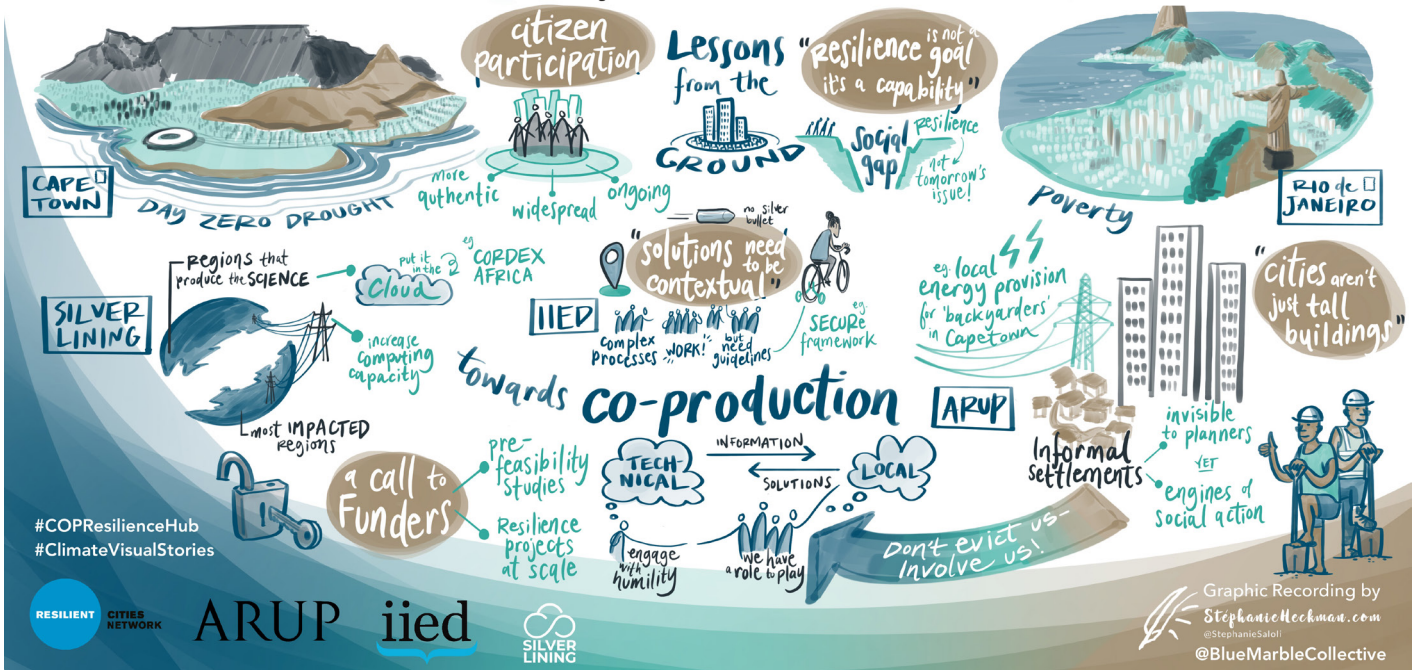 citizen
participation
more
authentic
widespread
ongoing
Lessons
from the
GROUND
"Resilience is not a goal
it's a capability"
social
gap
Resilience
not
tomorrow's
issue!
CAPE
TOWN
DAY ZERO DROUGHT
POVERTY
RIO de
JANEIRO
SILVER
LINING
Regions that
produce the SCIENCE
put it
in the
Cloud
eg
CORDEX
AFRICA
increase
computing
capacity
most IMPACTED
Regions
IIED
no silver
bullet
"solutions need
to be
contextual"
complex
processes
"WORK!"
but
need
guidelines
eg.
SECURE
framework
eg. local
energy provision
for 'backyarders'
in Capetown
"cities aren't
just tall
buildings"
towards
co-production
ARUP
Informal
settlements
invisible
to planners
YET
engines of
social action
a call to
Funders
pre-
feasibility
studies
Resilience
projects
at scale
TECH-
NICAL
INFORMATION
SOLUTIONS
LOCAL
engage
with
humility
we have
a role to play
Don't evict us-
Involve us!
#COPResilienceHub
#ClimateVisualStories
RESILIENT
CITIES
NETWORK
ARUP
iied
SILVER
LINING
Graphic Recording by
StéphanieHeckman.com
@StephanieSaloli
@BlueMarbleCollective